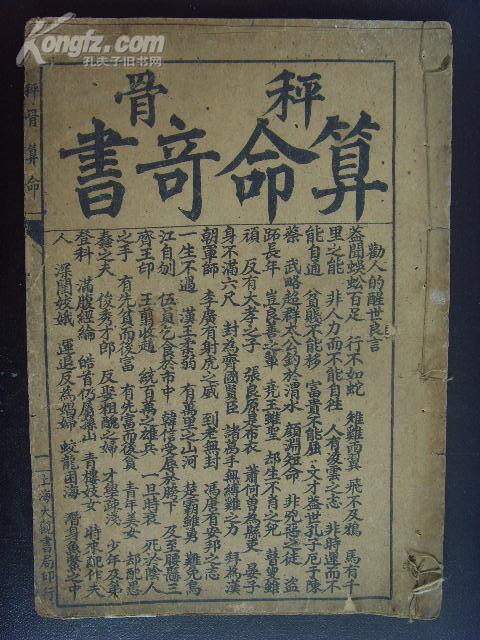 Kongfz.com
孔夫子旧书网
秤骨
算命竒書
勸人的醒世良言
益聞蜈蚣百足 行不如蛇 雄雞兩翼 飛不及鴉 馬有千
里之能 非人力而不能自往 人有凌雲之志 非時運而不
能自通 貧賤不能移 富貴不能屈 文才蓋世孔子厄于陳
蔡 武略超群太公釣於渭水 顏淵短命 非兇惡之徒 盜
跖長年 豈良善之輩 堯王雖聖 却生不肖之兒 瞽叟雖
頑 反有大孝之子 張良原是布衣 蕭何曾為縣吏 晏子
身不滿六尺 封為齊國賢臣 諸葛手無縛雞之力 拜為漢
朝軍師 李廣有射虎之威 到老無封 馮唐有安邦之志
一生不遇 漢王柔弱 有萬里之山河 楚霸雖勇 難免烏
江自刎 伍員乞食於市中 韓信受辱於胯下 及至腰懸三
齊王印 王翦收趙 統百萬之雄兵 一旦時衰 死於陰人
之手 有先貧而後富 有先富而後貧 青年美女 却配愚
蠢之夫 俊秀才郎 反娶粗醜之婦 才學疎淺 少年及第
登科 滿腹經綸 皓首仍居深山 青樓妓女 時來配作夫
人 深閨嬌娥 運退反為娼婦 蛟龍困海 潛身魚鱉之中
秤骨算命
一
上海大觀書局印行